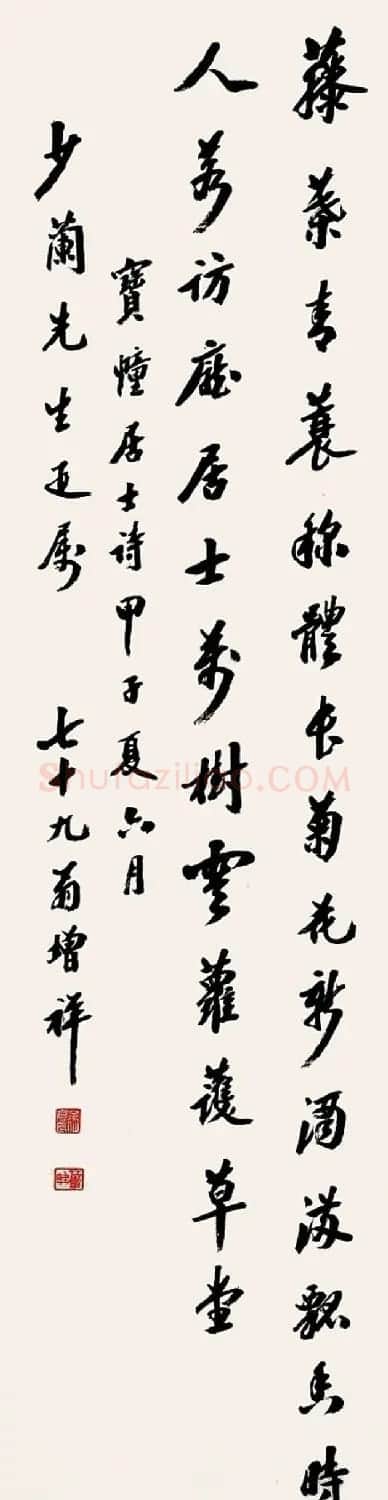 藤葉青蓑稱體長菊花新酒滿瓢香時
人若訪龐居士萬樹雲蘿護草堂
寶幢居士詩甲子夏六月
少蘭先生正屬 七十九翁增祥
Shufaziliao.COM